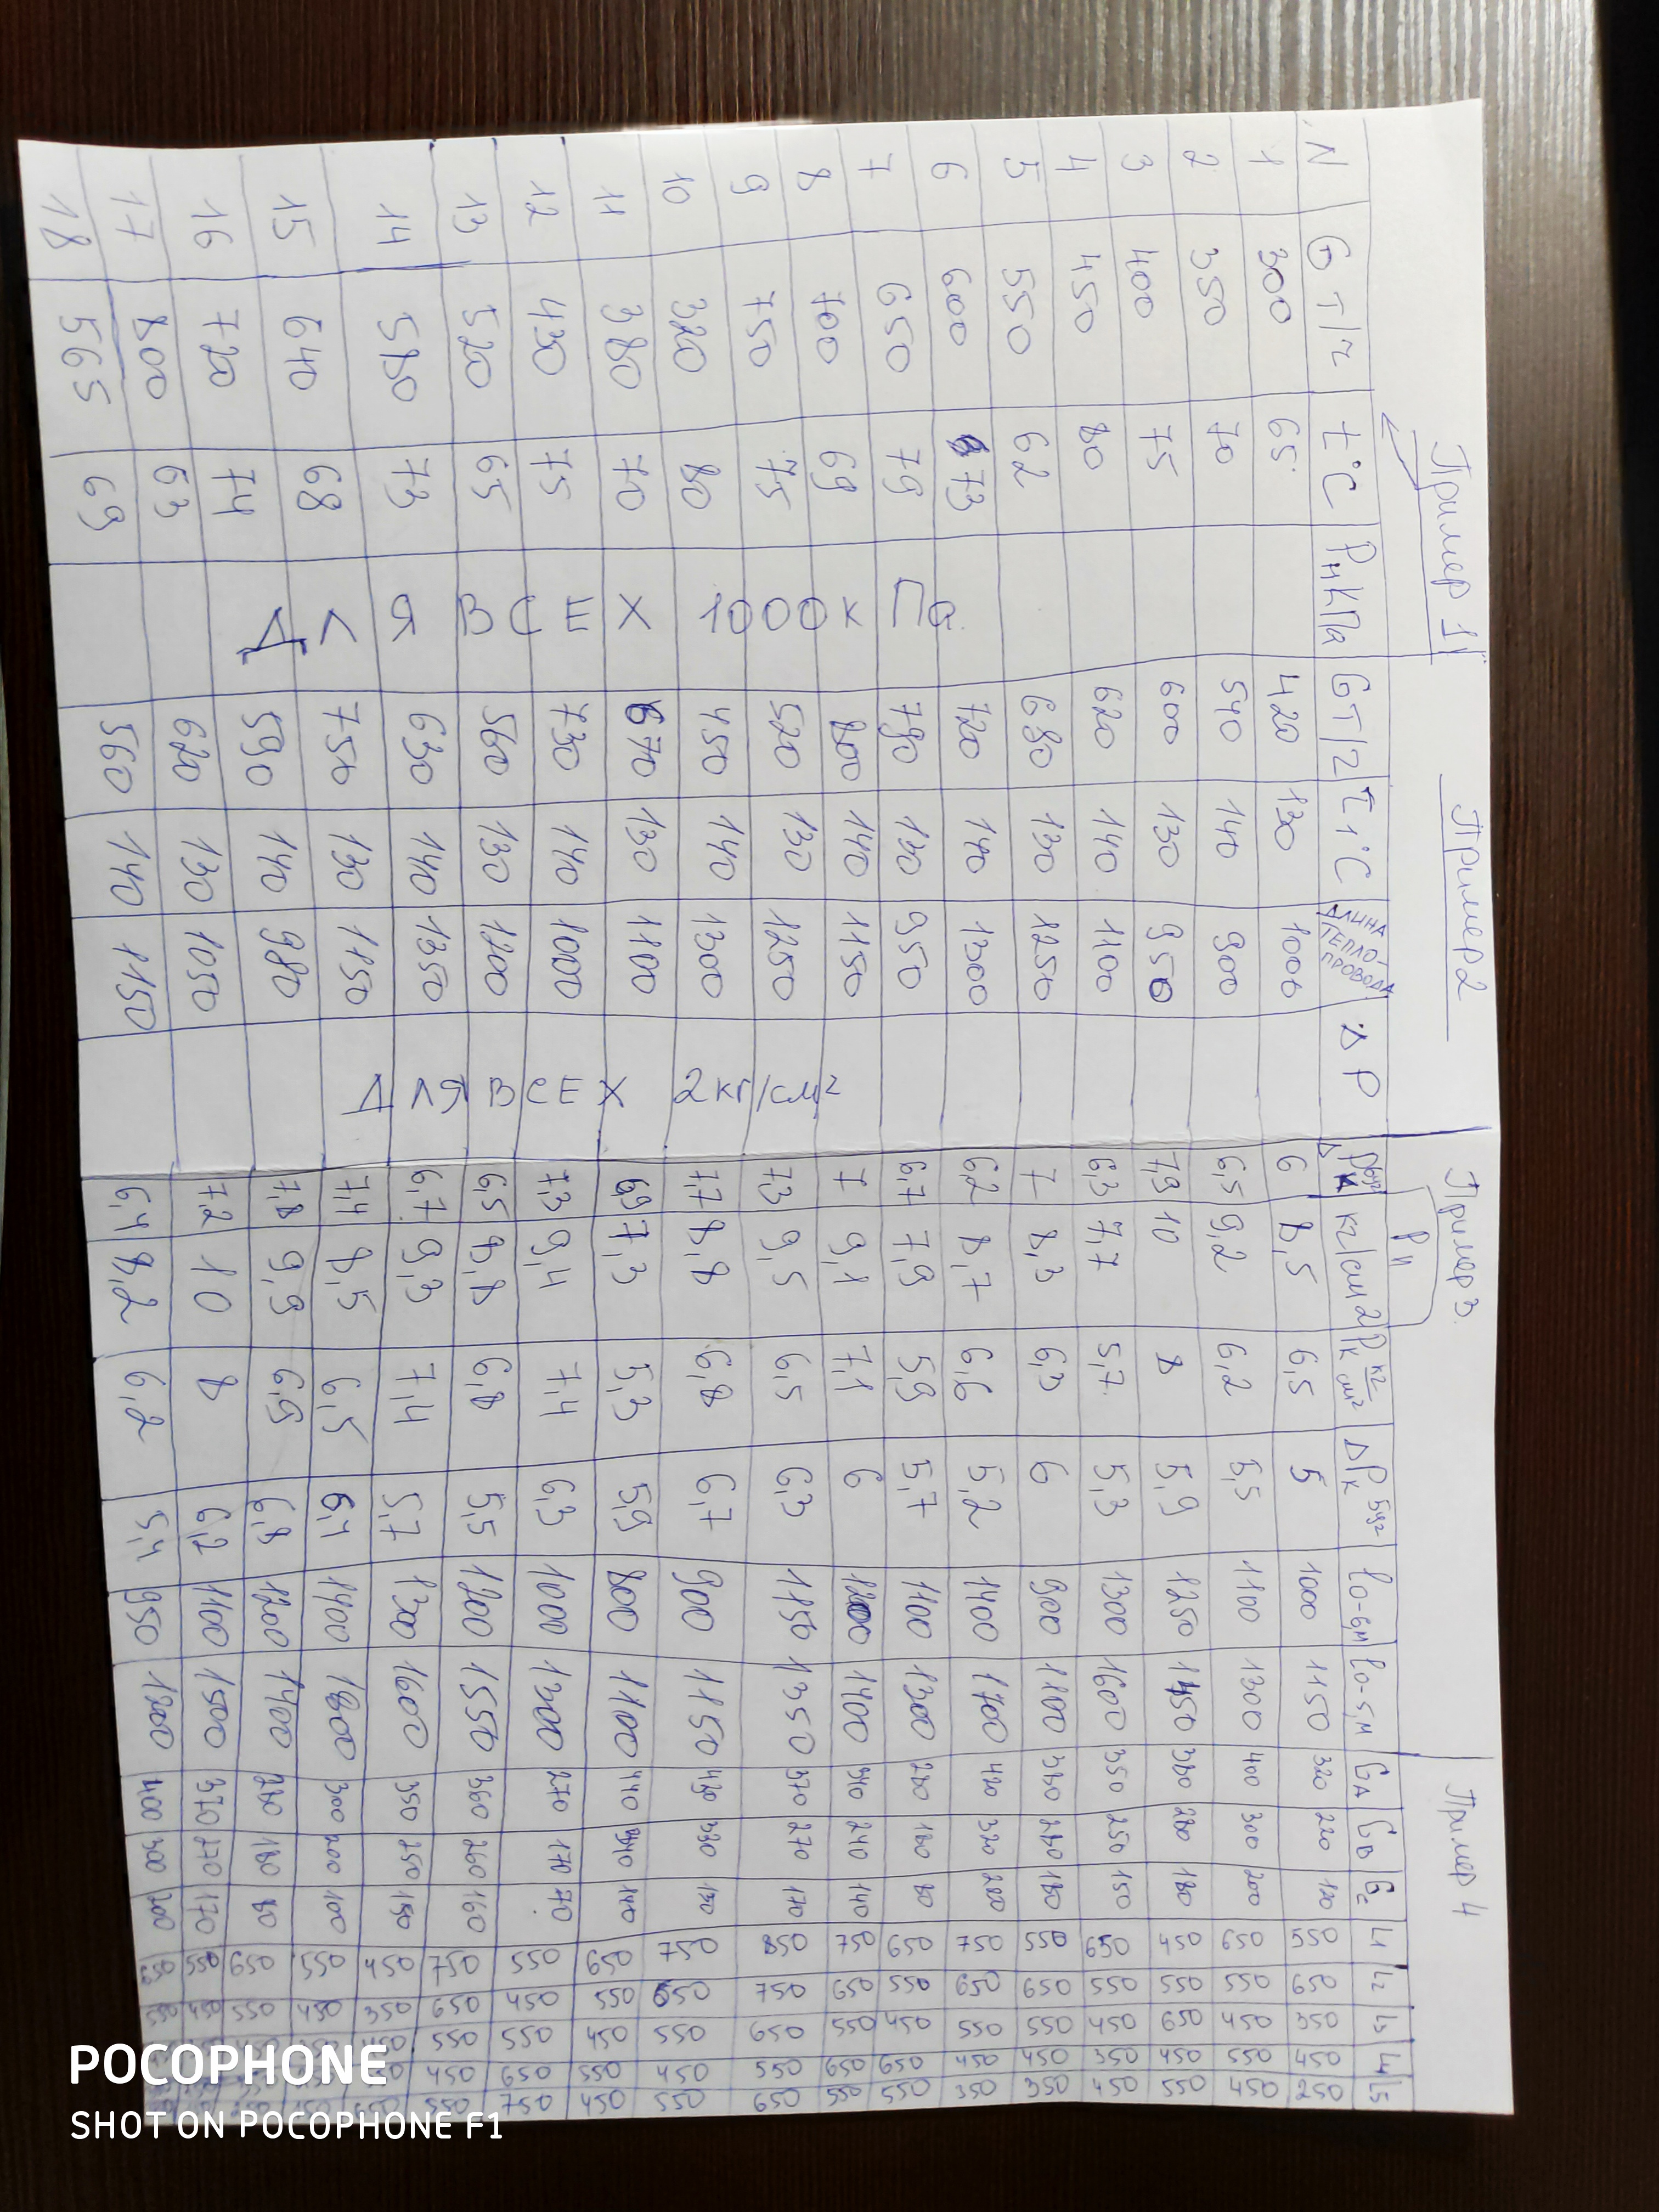 Пример 1 Пример 2 Пример 3 Пример 4
Pн
N G т/ч t°C PнкПа G т/ч τ1°C ДЛИНА ТЕПЛО-ПРОВОДА ΔP кг/см2 Pк кг/см² l0-6м l0-5,м GА GВ Gс L1 L2 L3 L4 L5
1 300 65 420 130 1000 6 8,5 6,5 5 1000 1150 320 220 120 550 650 350 450 250
2 350 70 540 140 900 6,5 9,2 6,2 5,5 1100 1300 400 300 200 650 550 450 550 450
3 400 75 600 130 950 7,9 10 8 5,9 1250 1450 380 280 180 450 550 650 450 550
4 450 80 620 140 1100 6,3 7,7 5,7 5,3 1300 1600 350 250 150 650 550 450 350 450
5 550 62 680 130 1250 7 8,3 6,3 6 900 1100 180 550 650 550 450 350
6 600 73 720 140 1300 6,2 8,7 6,6 5,2 1400 1700 420 320 750 650 550 450 350
7 650 79 780 130 950 6,7 7,9 5,9 5,7 1100 1300 280 180 80 650 550 450 650 550
8 700 69 800 140 1150 7 9,1 7,1 6 1200 1400 340 240 140 750 650 550 650 550
9 750 75 520 130 1250 7,3 9,5 6,5 6,3 1150 1350 370 270 170 850 750 650 550 650
10 320 80 450 140 1300 7,7 8,8 6,8 6,7 900 1150 430 330 750 650 550 450 550
11 380 70 670 130 1100 6,9 7,3 5,3 5,9 800 1100 440 650 550 450 550 450
12 430 75 730 140 1000 7,3 9,4 7,4 6,3 1000 1300 270 170 70 550 450 550 650 750
13 520 65 560 130 1200 6,5 8,8 6,8 5,5 1200 1550 360 260 160 750 650 550 450 550
14 580 73 630 140 1350 6,7 9,3 7,4 5,7 1300 1600 350 250 150 450 350
15 640 68 750 130 1150 7,4 8,5 6,5 6,1 1400 1800 300 200 100 550 450
16 720 74 590 140 980 7,8 9,9 6,9 6,8 1200 1400 280 180 80 650 550
17 800 63 620 130 1050 7,2 10 8 6,2 1100 1500 370 270 170 550 450
18 565 69 560 140 1150 6,4 8,2 6,2 5,4 950 1200 400 300 200
Для всех 1000 кПа
Для всех 2 кг/см²
POCOPHONE
SHOT ON POCOPHONE F1